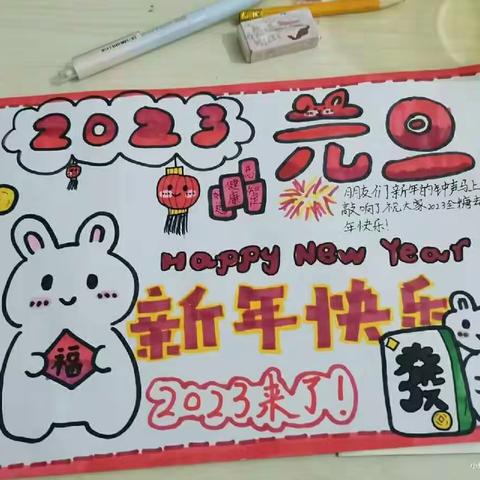 2023
元旦
健康
朋友们新年的钟声马上
敲响了祝大家2023全
年快乐!
Happy New Year
新年快乐
福
發
2023来了!